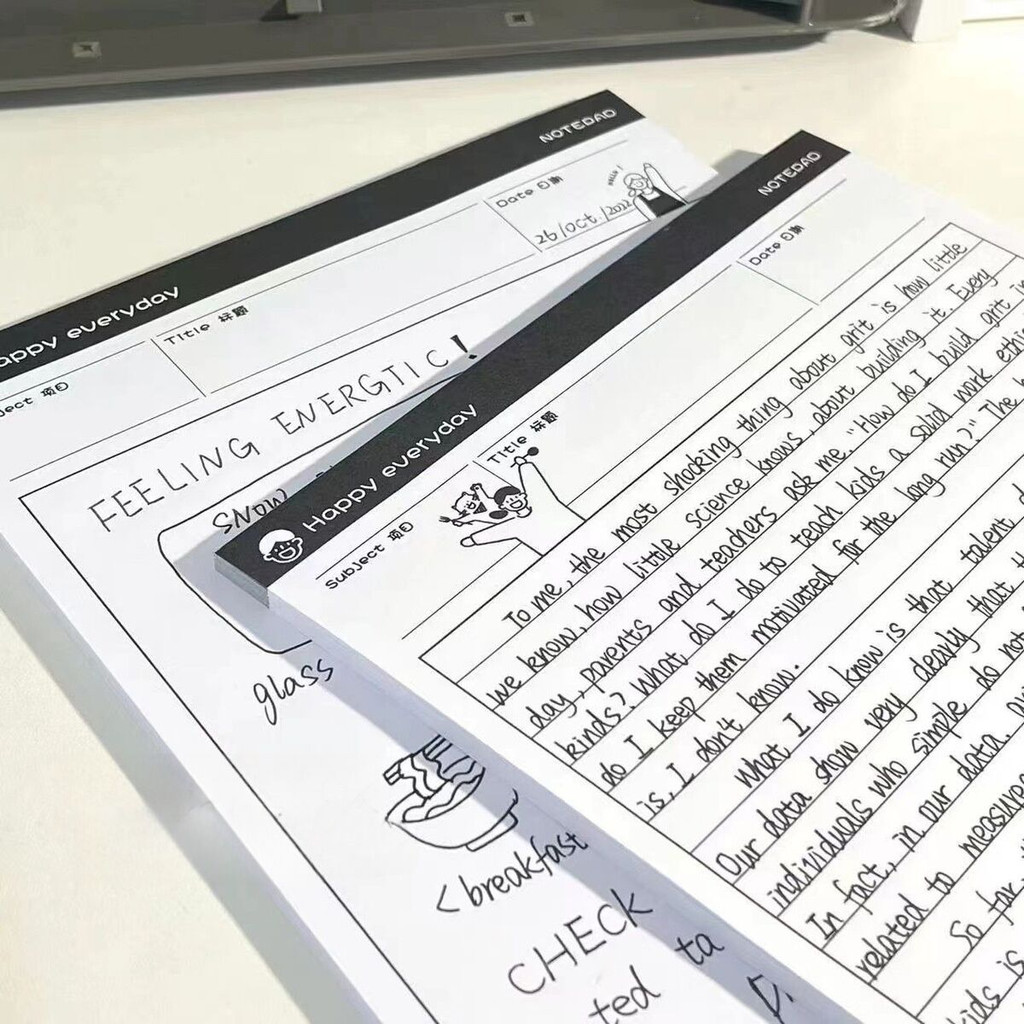 NOTEPAD
Happy everyday
Subject 项目
Title 标题
Date 日期
26/Oct./2022
HELLO!
FEELING ENERGTIC!
SNOW
glass
<breakfast
CHECK
ted
ta
NOTEPAD
Happy everyday
Subject 项目
Title 标题
Date 日期
To me, the most shocking thing about grit is how little
we know, how little science knows, about building it. Every
day, parents and teachers ask me. "How do I build grit in
kinds? What do I do to teach kids a solid work ethic
do I keep them motivated for the long run?" The h
is, I don't know.
What I do know is that talent d
Our data show very clearly that th
individuals who simple do not
In fact, in our data,
related to measures
So far
kids is